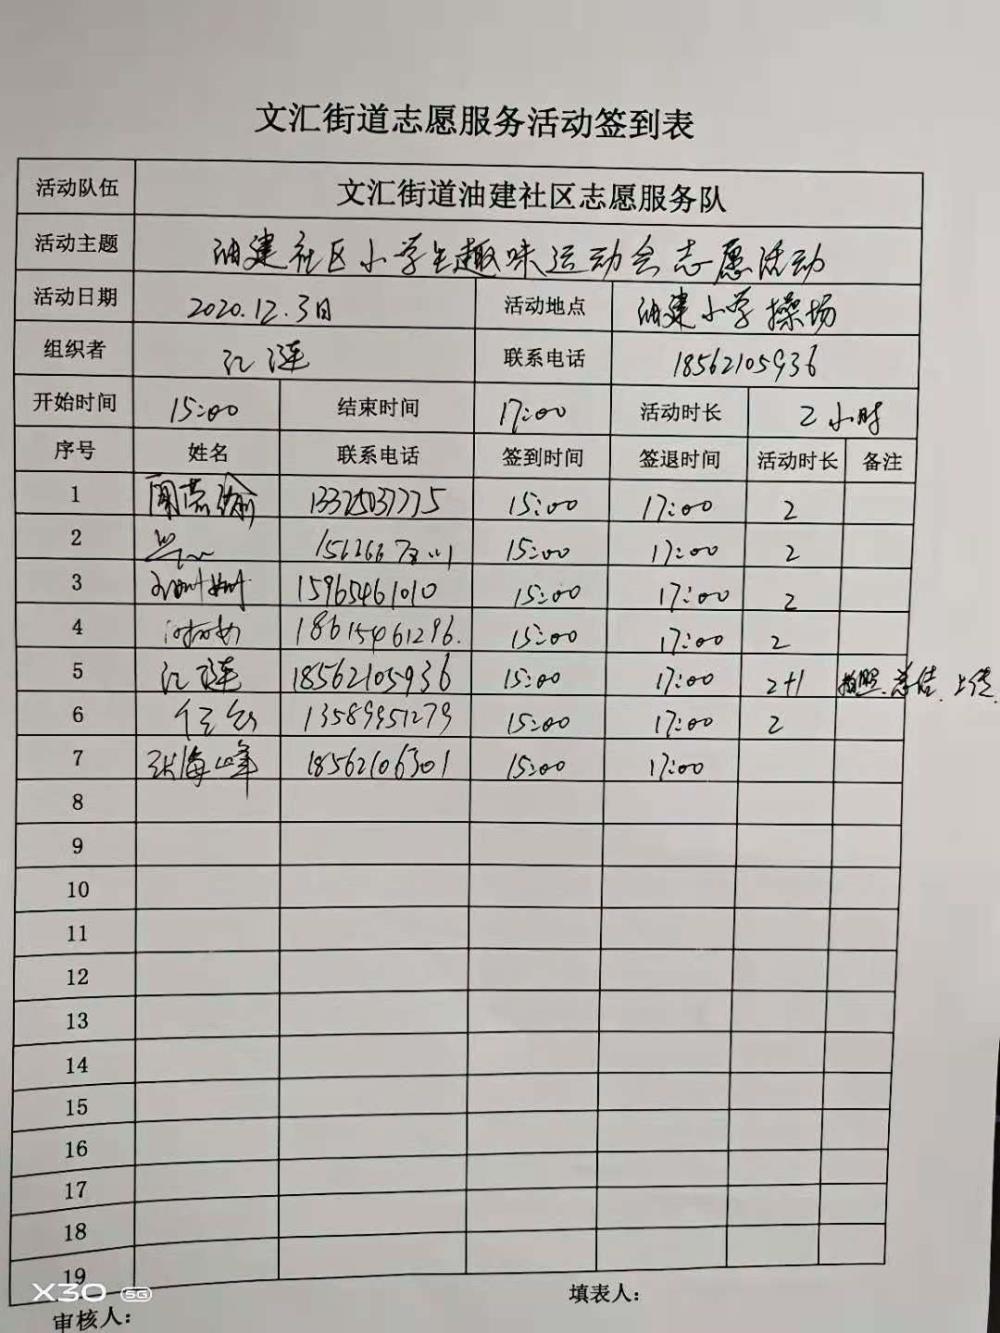 文汇街道志愿服务活动签到表
活动队伍 文汇街道油建社区志愿服务队
活动主题 油建社区小学生趣味运动会志愿活动
活动日期 2020.12.3日 活动地点 油建小学操场
组织者 江涟 联系电话 18562105936
开始时间 15:00 结束时间 17:00 活动时长 2小时
序号 姓名 联系电话 签到时间 签退时间 活动时长 备注
1 13325037775 15:00 17:00 2
2 15:00 17:00 2
3 15965461010 15:00 17:00 2
4 18615461296. 15:00 17:00 2
5 江涟 18562105936 15:00 17:00 2+1 拍照、总结、上传、
6 13589951279 15:00 17:00 2
7 张海峰 18562106301 15:00 17:00
8
9
10
11
12
13
14
15
16
17
18
19
X30 5G
审核人： 填表人：